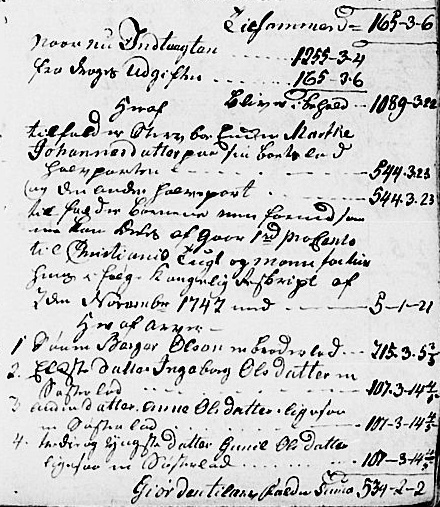 Tilsammend = 165-3-6
Naar nu Indtægten ........ 1255-3-4
fra drages Udgiften ........ 165-3-6
Bliver i behold - 1089-3-22
Heraf
tilfalder Sterfboe Enken Marthe
Johannesdatter paa sin boeslod
halvparten - 544.3.23
og den anden halvpart - 544.3.23
til falder Børnene men forend som
til Christiania Tugt og Manufactur
huus i følge Kongelig Rescript af
7den November 1747 med - 5-1-21
Heraf arver -
1 Sønnen Børger Olson en broderlod - 215.3.5
2. Eldste datter Ingeborg Olsdatter en
Søsterlod - 107.3-14
3 anden datter Anne Olsdatter ligesaa
en Søsterlod - 107-3-14
4. tredie og yngste datter Gunil Olsdatter
ligesaa en Søsterlod - 107-3-14
Giør den tilarv falden Suma 534-2-2